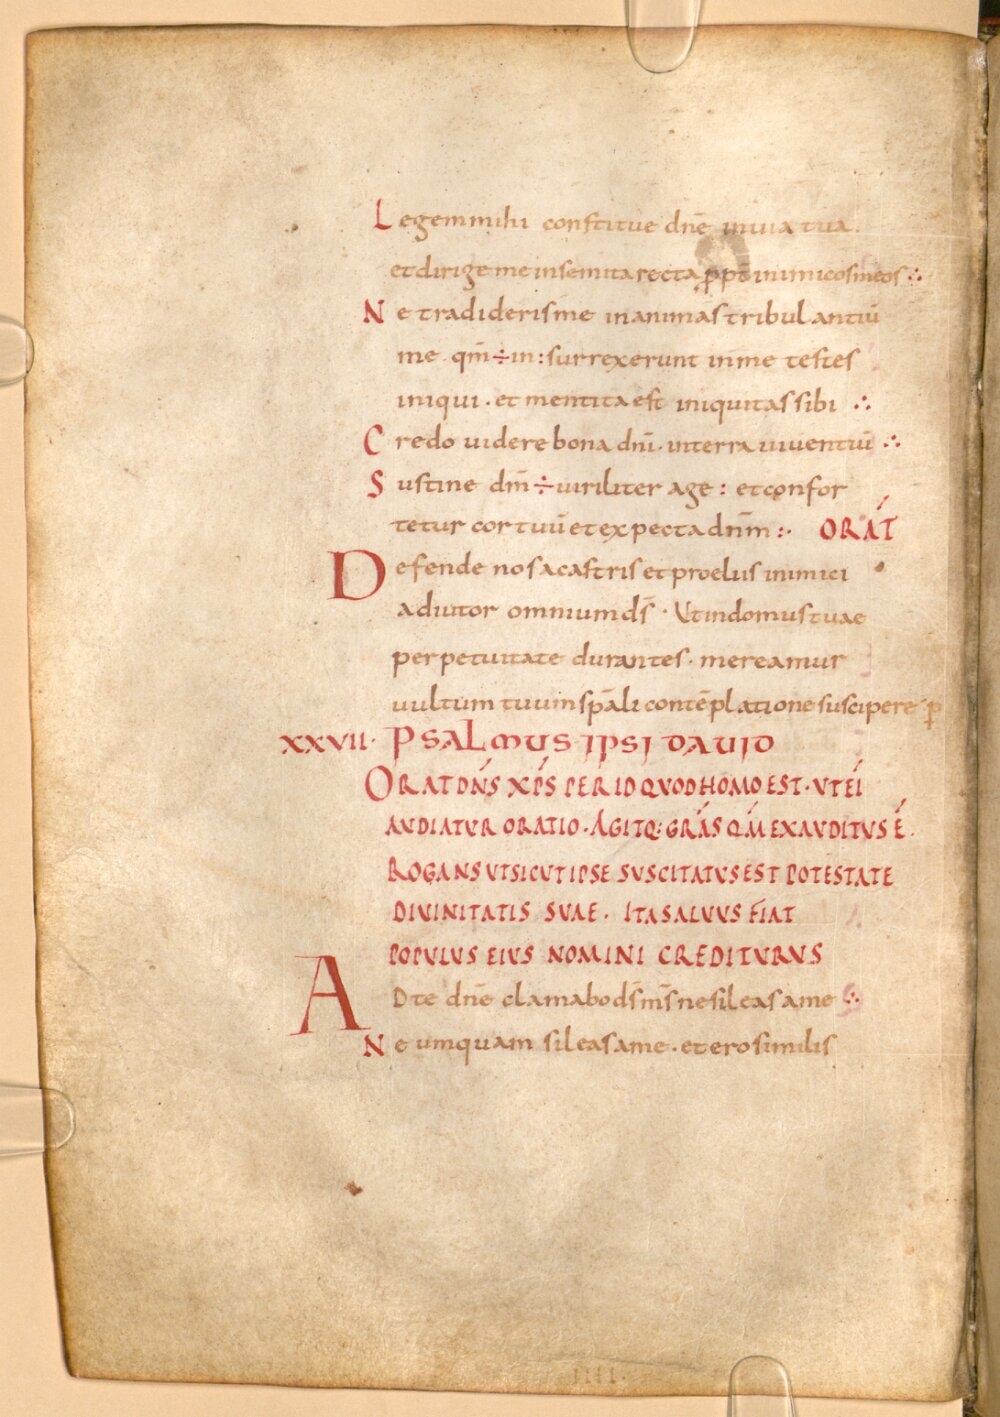 Legem mihi constitue dnē in uia tua.
et dirige me in semita recta ꝓpt̄ inimicos meos ∴
Ne tradideris me in animas tribulantiū
me qm̄ ÷ in : surrexerunt in me testes
iniqui · et mentita est iniquitas sibi ∴
Credo uidere bona dnī · in terra uiuentiū ∴
Sustine dnm̄ ÷ uiriliter age : et confor
tetur cor tuū et expecta dnm̄ :· ORAT́
Defende nos a castris et proeliis inimici
adiutor omnium ds̄ · Ut in domus tuae
perpetuitate durantes · mereamur
uultum tuum sp̄ali contēplatione suscipere · p̄
XXVII · PSALMUS IPSI DAUID
ORAT DN̄S XP̄S PER ID QUOD HOMO EST · UT EI
AUDIATUR ORATIO · AGITQ: GRĀS QM̄ EXAUDITUS Ē ·
ROGANS UT SICUT IPSE SUSCITATUS EST POTESTATE
DIUINITATIS SUAE · ITA SALUUS FIAT
POPULUS EIUS NOMINI CREDITURUS
AD te dnē clamabo ds̄ ms̄ ne sileas a me ∴
Ne umquam sileas a me · et ero similis
IIII·